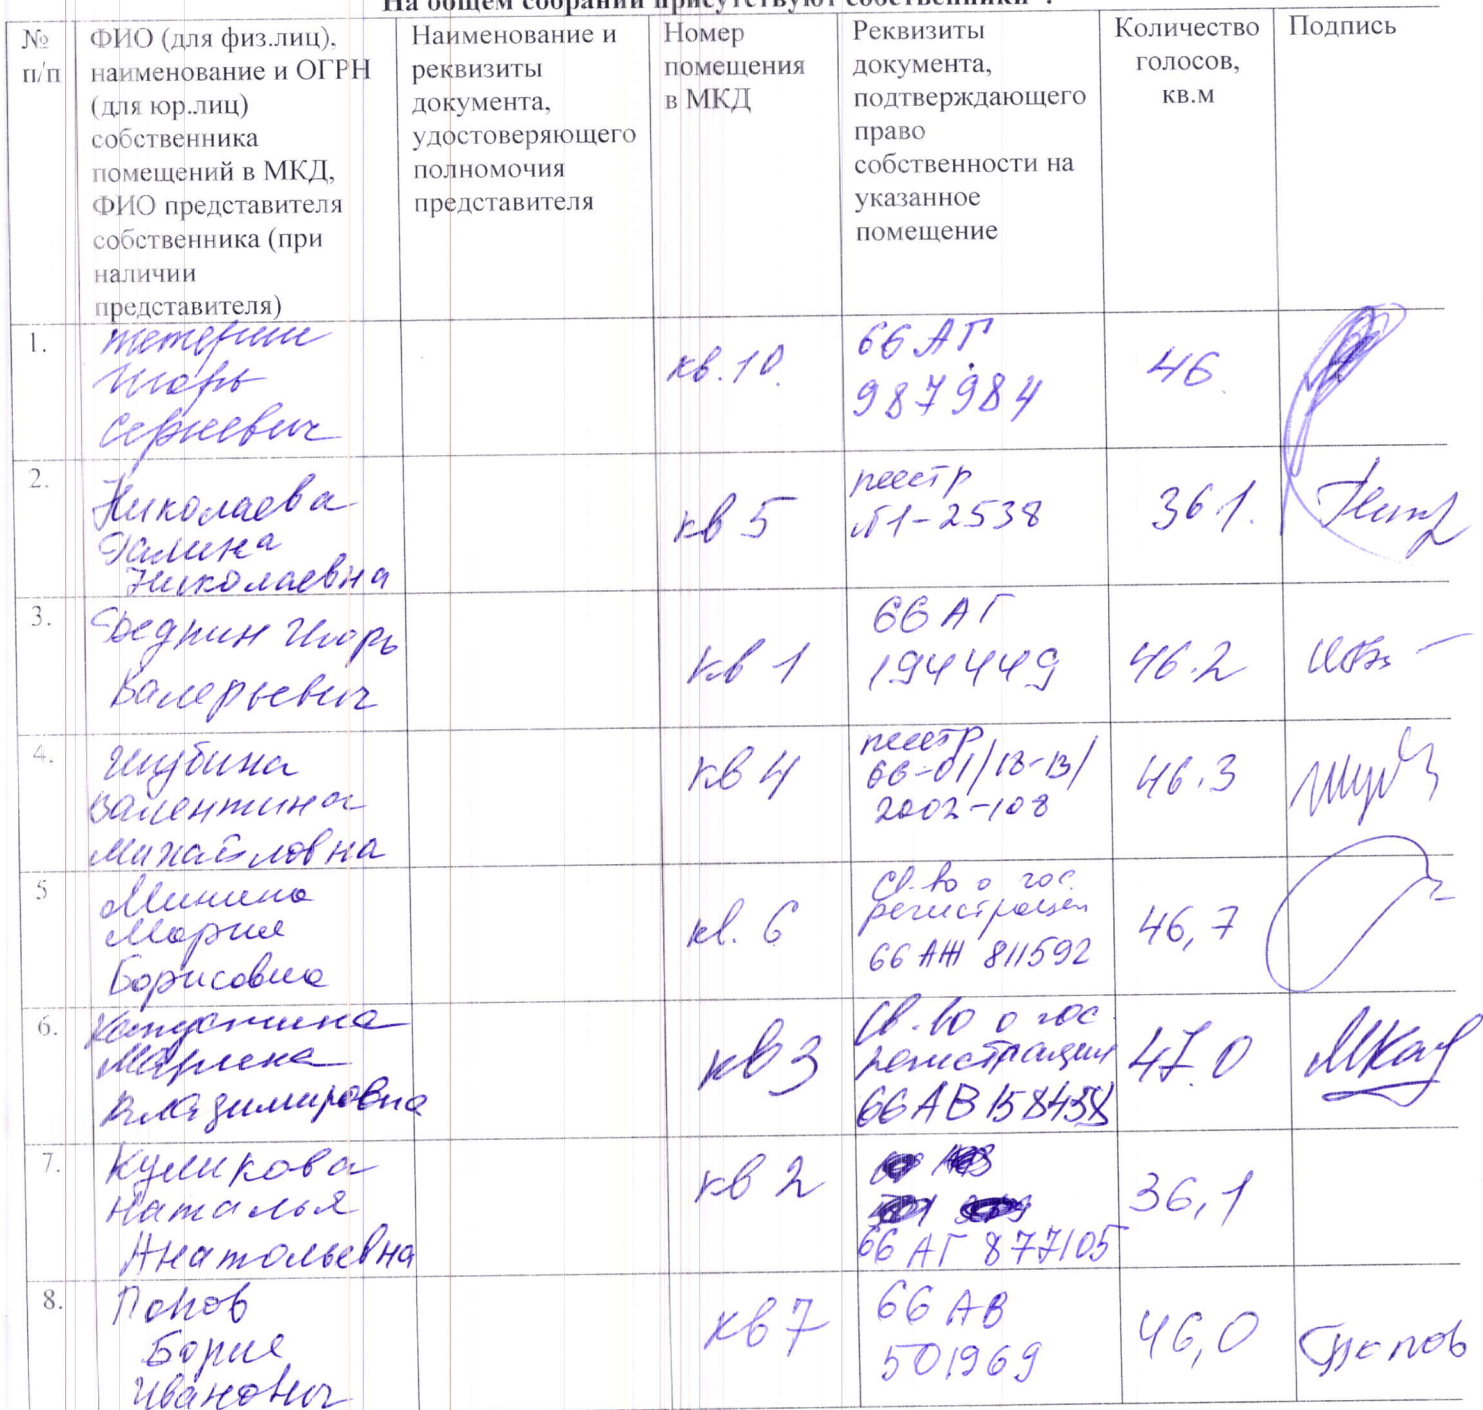 На общем собрании присутствуют собственники
№ п/п
ФИО (для физ.лиц),
наименование и ОГРН
(для юр.лиц)
собственника
помещений в МКД,
ФИО представителя
собственника (при
наличии
представителя)
Наименование и
реквизиты
документа,
удостоверяющего
полномочия
представителя
Номер
помещения
в МКД
Реквизиты
документа,
подтверждающего
право
собственности на
указанное
помещение
Количество
голосов,
кв.м
Подпись
1.
Тетерин
Игорь
Сергеевич
кв.10.
66 АГ
987984
46
2.
Николаева
Галина
Николаевна
кв 5
реестр
№1-2538
36 1.
3.
Игорь
Валерьевич
кв 1
66 АГ
194449
46.2
4.
Шубина
Валентина
Михайловна
кв 4
реестр
66-01/18-13/
2002-108
46.3
5
Минина
Мария
Борисовна
кв. 6
Св-во о гос.
регистрации
66 АЖ 811592
46,7
6.
Марина
Владимировна
кв 3
Св-во о гос.
регистрации
66 АВ
47.0
7.
Куликова
Наталья
Анатольевна
кв 2
66 АГ 877105
36,1
8.
Попов
Борис
Иванович
кв 7
66 АВ
501969
46,0